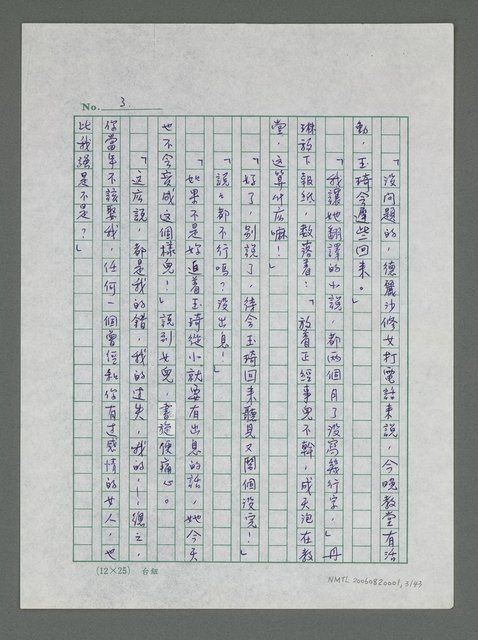 No. 3.
「沒問題的，德麗沙修女打電話來說，今晚教堂有活
動，玉琦會遲些回來。」
「我讓她翻譯的小說，都兩個月了沒寫幾行字，」丹
琳放下報紙，數落着：「放着正經事兒不幹，成天泡在教
堂，這算什庅嘛！」
「好了，别說了，待会玉琦回來聽見又鬧個沒完！」
「說々都不行嗎？沒出息！」
「如果不是妳迫着玉琦從小就要有出息的話，她今天
也不会變成這個樣兒！」說到女兒，書旋便痛心。
「這庅說，都是我的錯，我的過失，我的——總之，
你當年不該娶我，任何一個曾經和你有过感情的女人，也
比我強是不是？」
(12×25) 台紐
NMTL 20060820001, 3/43